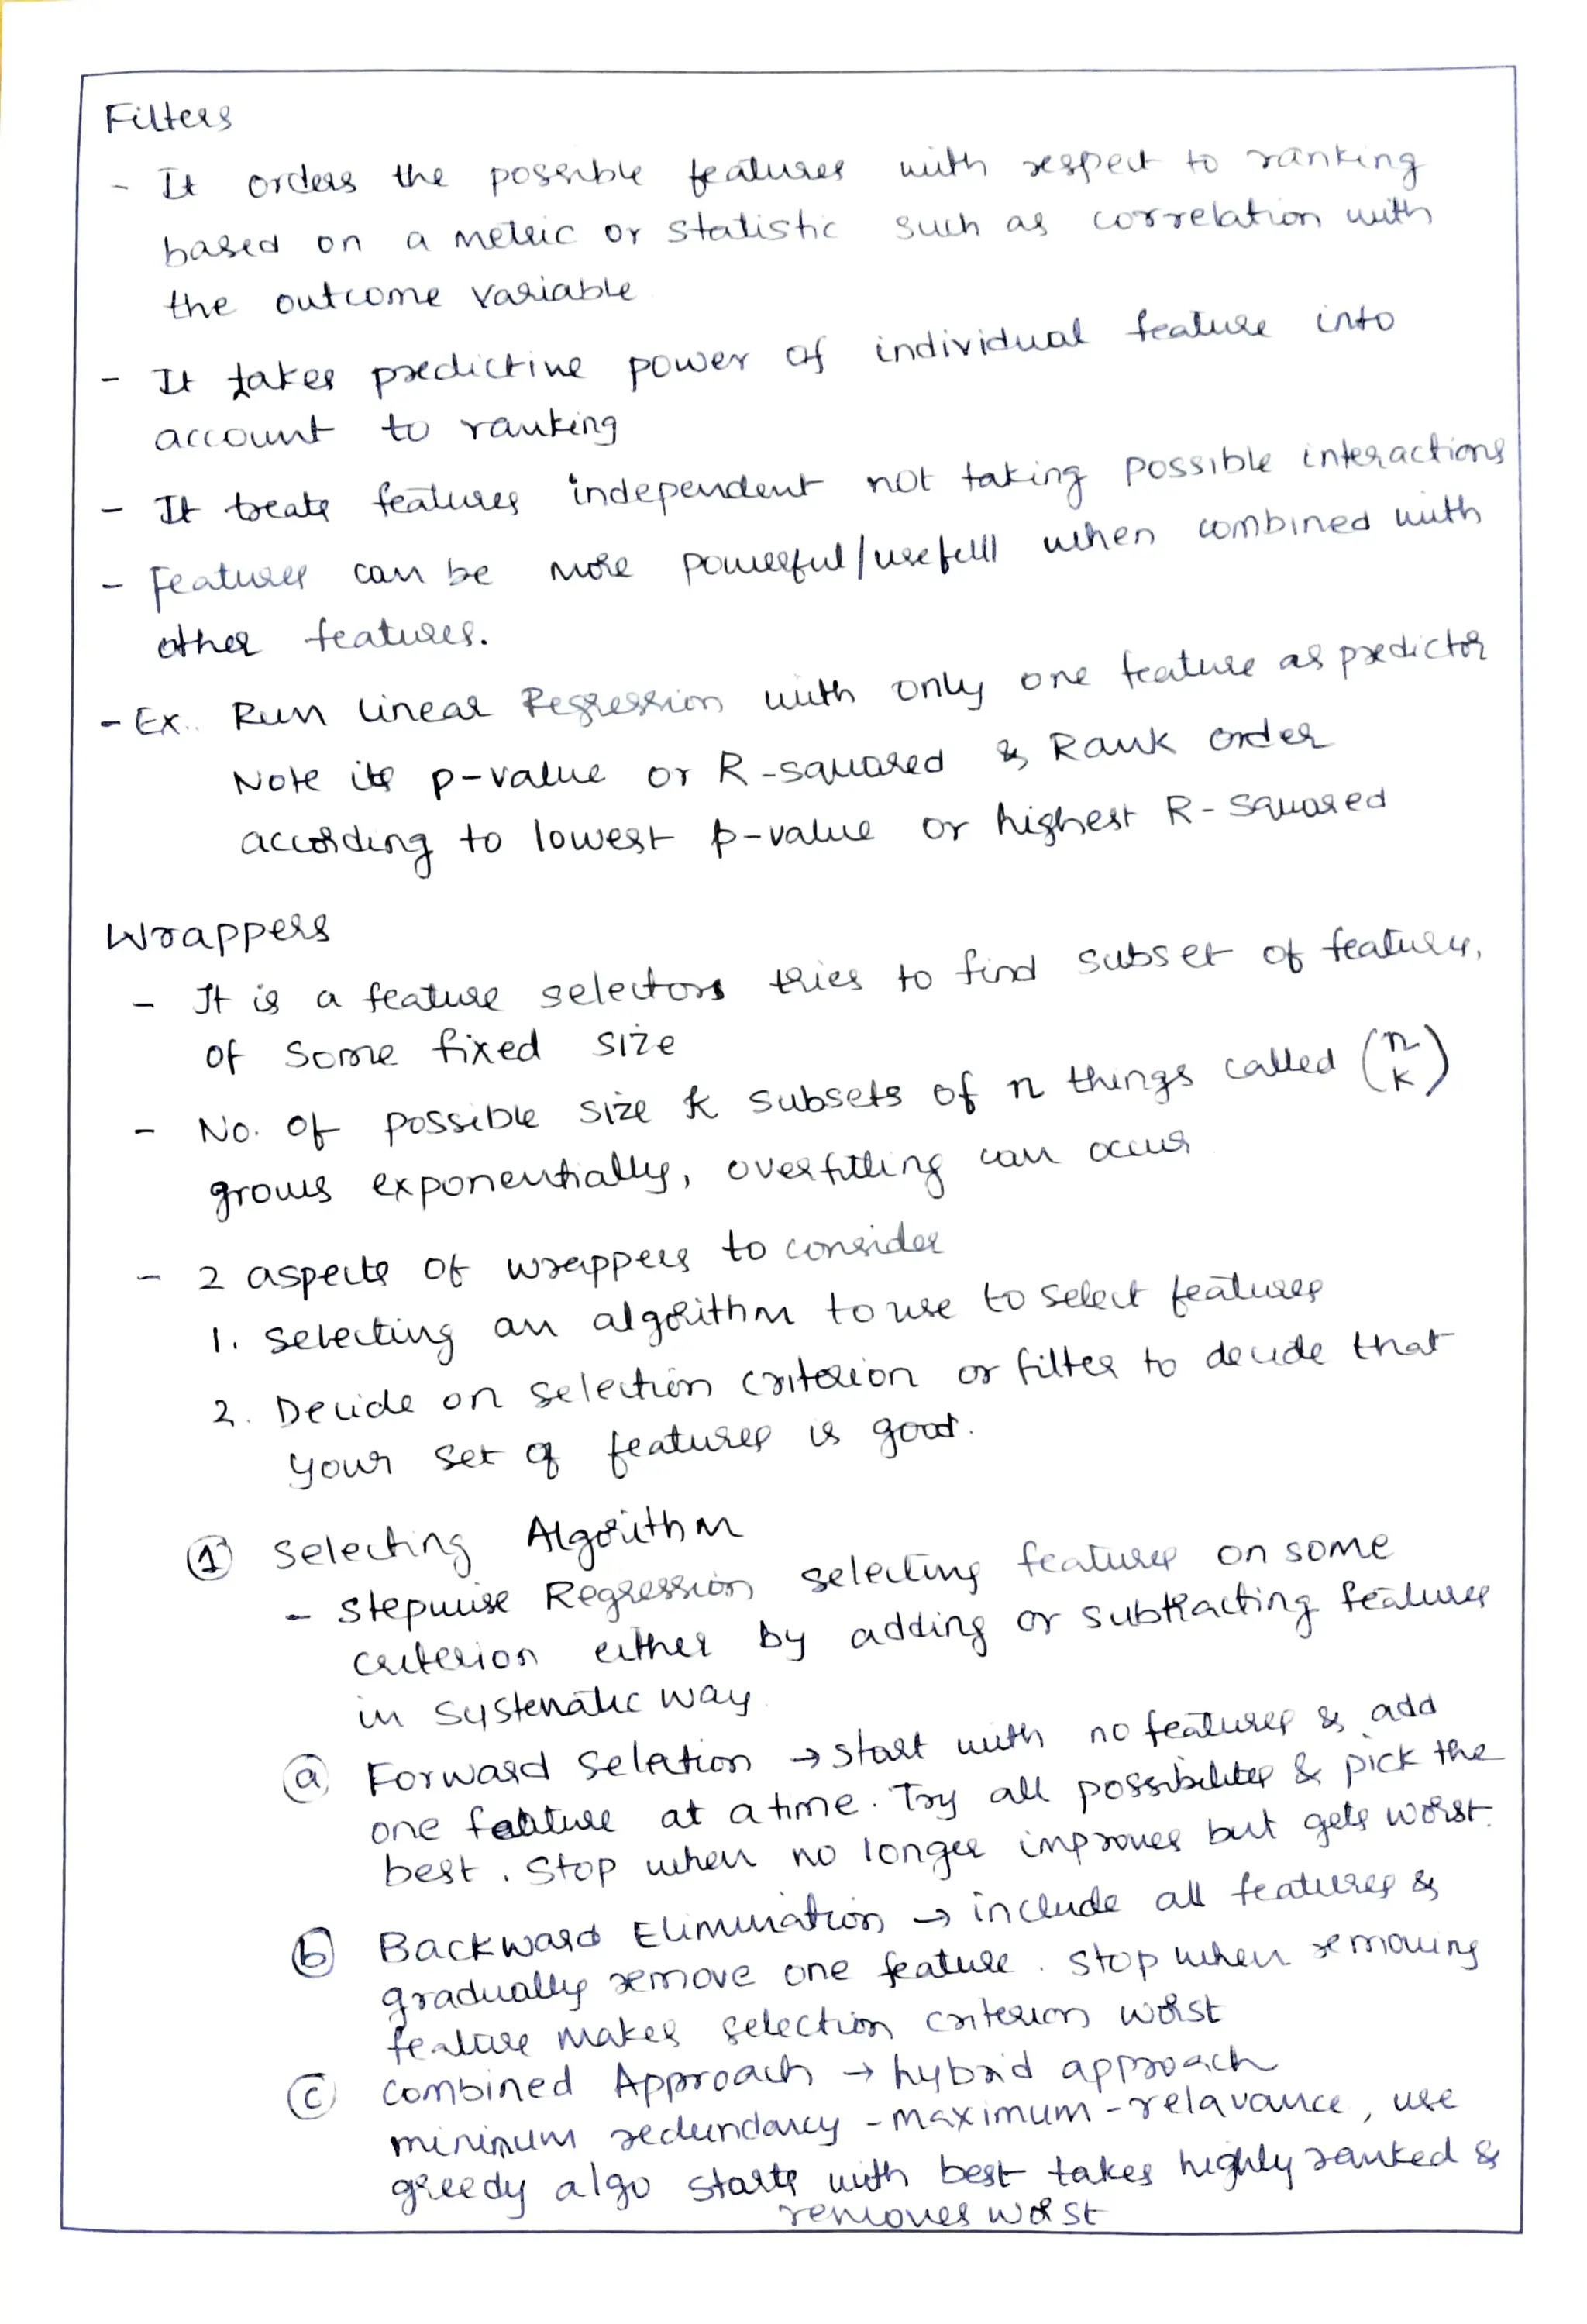 Filters
- It orders the possible features with respect to ranking
based on a metric or statistic such as correlation with
the outcome variable
- It takes predictive power of individual feature into
account to ranking
- It treats features independent not taking possible interactions
- Features can be more powerful/usefull when combined with
other features.
- Ex.. Run Linear Regression with only one feature as predictor
Note its p-value or R-squared & Rank order
according to lowest p-value or highest R-squared
Wrappers
- It is a feature selectors tries to find subset of features,
of some fixed size
- No. of possible size k subsets of n things called (n k)
grows exponentially, overfitting can occur
- 2 aspects of wrappers to consider
1. selecting an algorithm to use to select features
2. Decide on selection criterion or filter to decide that
your set of features is good.
① Selecting Algorithm
- Stepwise Regression selecting features on some
criterion either by adding or subtracting features
in systematic way
ⓐ Forward Seletion → start with no features & add
one feature at a time. Try all possibilites & pick the
best. Stop when no longer improves but gets worst.
ⓑ Backward Elimination → include all features &
gradually remove one feature. stop when removing
feature makes selection criterion worst
ⓒ Combined Approach → hybrid approach
minimum redundancy - maximum - relavance, use
greedy algo starts with best takes highly ranked &
removes worst